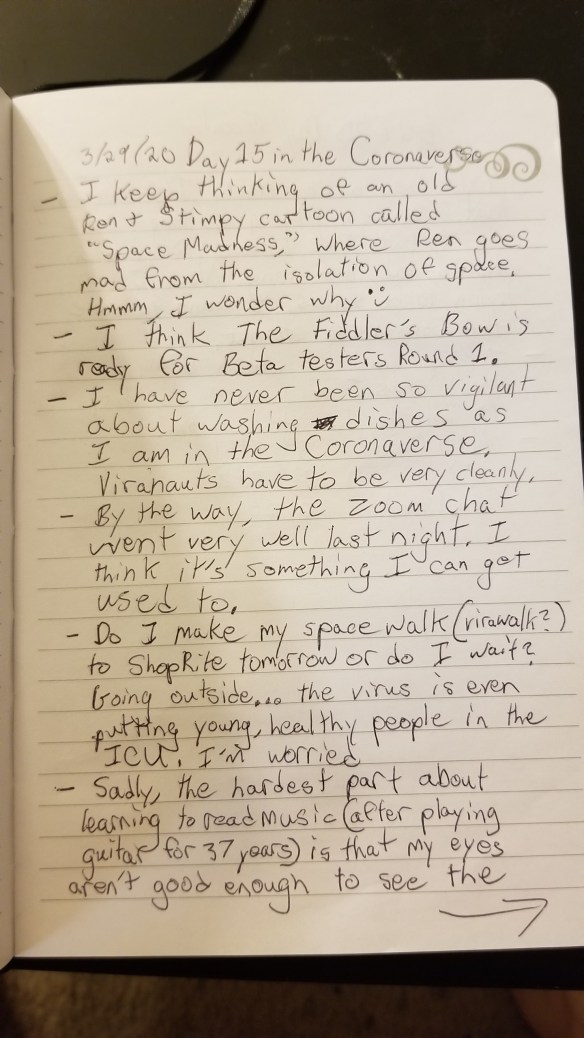 3/29/20 Day 15 in the Coronaverse
- I keep thinking of an old
Ren & Stimpy cartoon called
"Space Madness," where Ren goes
mad from the isolation of space.
Hmmm, I wonder why
- I think The Fiddler's Bow is
ready for Beta testers Round 1.
- I have never been so vigilant
about washing dishes as
I am in the Coronaverse.
Viranauts have to be very cleanly.
- By the way, the Zoom chat
went very well last night. I
think it's something I can get
used to.
- Do I make my space walk (virawalk?)
to ShopRite tomorrow or do I wait?
Going outside... the virus is even
putting young, healthy people in the
ICU. I'm worried
- Sadly, the hardest part about
learning to read music (after playing
guitar for 37 years) is that my eyes
aren't good enough to see the